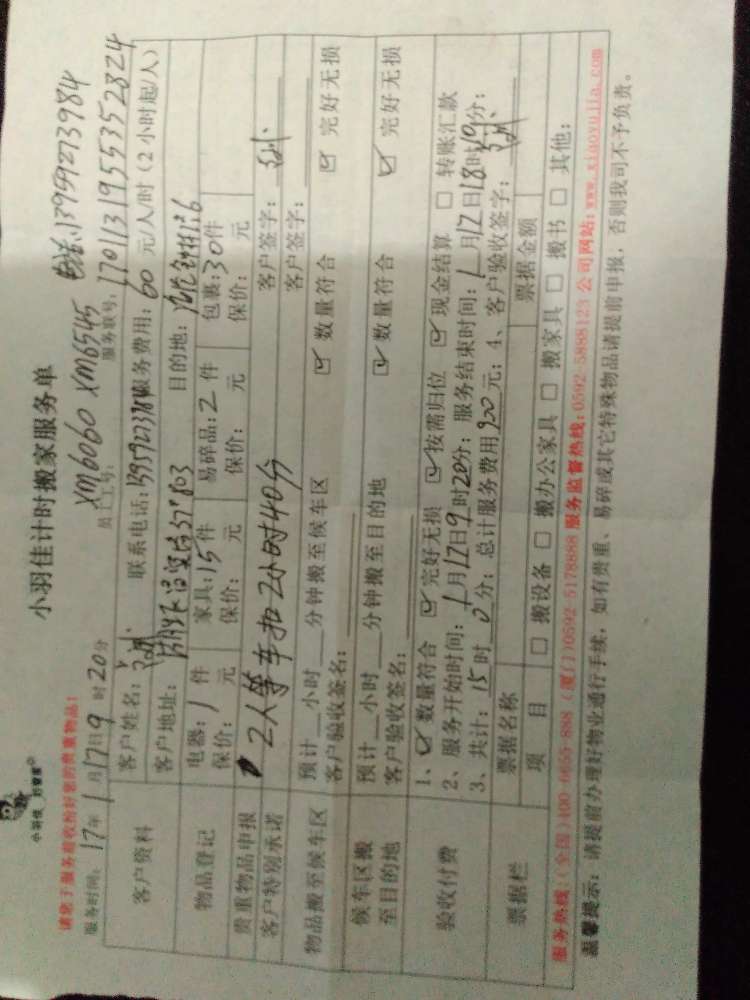 小羽佳计时搬家服务单
请您于服务前收拾好您的贵重物品!
XM6060 XM6545 13959273984
服务时间: 17年1月17日9时20分 员工工号: 服务联号: 1701131955352824
客户资料 客户姓名: 联系电话: 13959273984 服务费用: 60 元/人/时 (2小时起/人)
客户地址: 目的地:
物品登记 电器: 1 件 家具: 15 件 易碎品: 2 件 包裹: 30 件
保价: 元 保价: 元 保价: 元 保价: 元
贵重物品申报 客户签字:
客户特别承诺 2人等车扣2小时40分 客户签字:
物品搬至候车区 预计 小时 分钟搬至候车区 数量符合 完好无损
客户验收签名:
候车区搬至目的地 预计 小时 分钟搬至目的地 数量符合 完好无损
客户验收签名:
验收付费 1、数量符合 完好无损 按需归位 现金结算 转账汇款
2、服务开始时间: 1月17日9时20分; 服务结束时间: 1月17日18时 分;
3、共计: 15时0分; 总计服务费用 920 元; 4、客户验收签字:
票据栏 票据名称 票据金额
项目 搬设备 搬办公家具 搬家具 搬书 其他:
服务热线: (全国) 400-6655-888 (厦门) 0592-5178888 服务监督热线: 0592-5888123 公司网站: www.xiaoyujia.com
温馨提示: 请提前办理好物业通行手续, 如有贵重、易碎或其它特殊物品请提前申报, 否则我司不予负责。